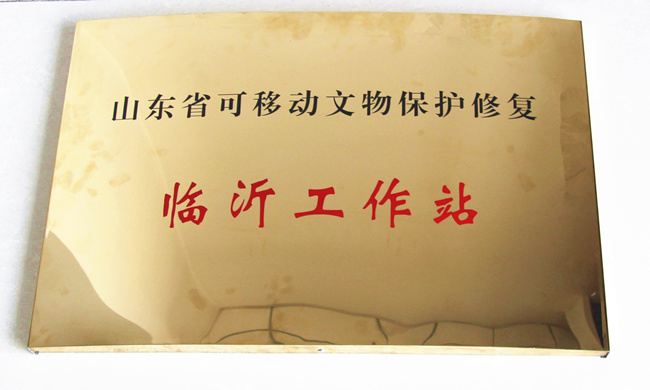 山东省可移动文物保护修复
临沂工作站